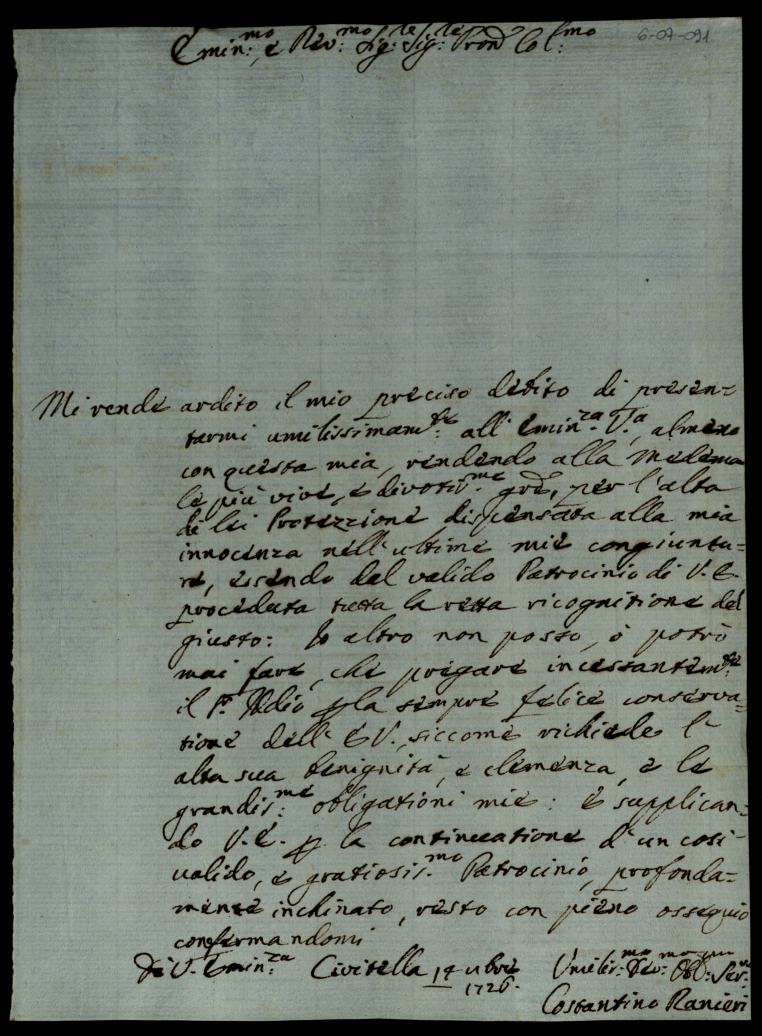 6-07-091
Emin:mo, e Rev:mo Sig:re Sig:re Pron Col:mo
Mi rende ardito il mio preciso debito di presen=
tarmi umilissimam:te all' Emin:za V:a, almeno
con questa mia, rendendo alla medema
le più vive, e divotis:me grē, per l'alta
di lei Protezzione dispensata alla mia
innocenza nell'ultime mie congiuntu=
re, essendo dal valido Patrocinio di V. E.
proceduta tutta la retta ricognitione del
giusto: Io altro non posso, ò potrò
mai fare, che pregare incessantem:te
il Sr. Iddio p la sempre felice conserva=
tione dell' E V., siccome richiede l'
alta sua benignità, e clemenza, e le
grandis:me obligationi mie: e supplican=
do V. E. p la continuatione d'un così
valido, e gratiosis:mo Patrocinio, profonda=
mente inchinato, resto con pieno ossequio
confermandomi
Di V. Emin:za Civitella 14 9bre 1726.
Umilis:mo Dev:mo Obb: Ser:
Costantino Ranieri